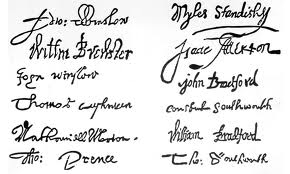 Edw: Winslow
Willm Bradford
John winslow
Thomas cushman
Nathaniell Morton
Tho: Prence
Myles Standish
Isaac Allerton
john Bradford
constant Southworth
William Bradford
Tho: Southworth